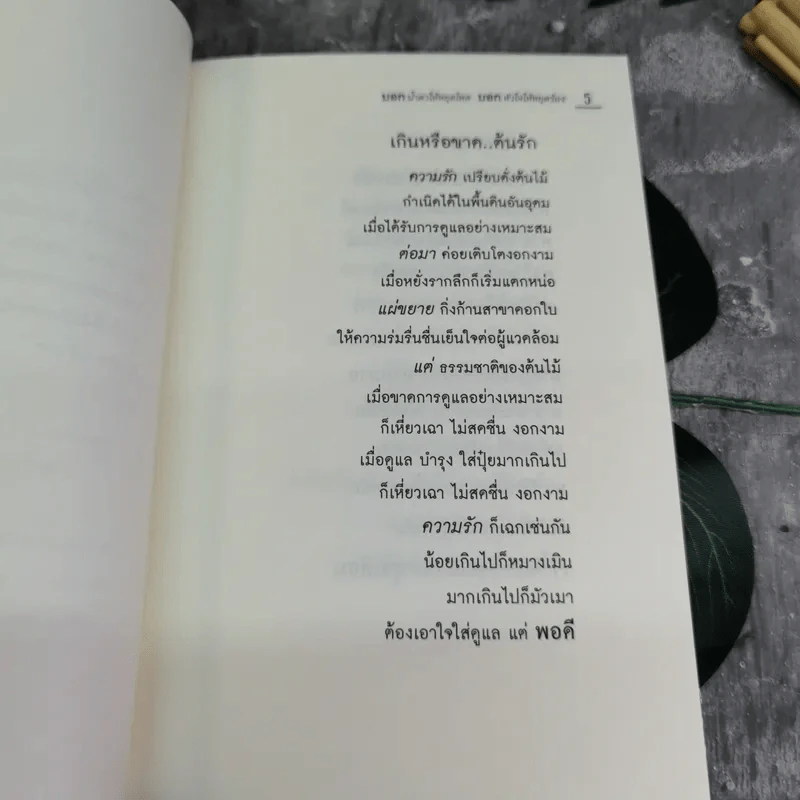 บอก น้ำตาให้หยุดไหล บอก หัวใจให้หยุดร้อง 5
เกินหรือขาด..ต้นรัก
ความรัก เปรียบดั่งต้นไม้
กำเนิดได้ในพื้นดินอันอุดม
เมื่อได้รับการดูแลอย่างเหมาะสม
ต่อมา ค่อยเติบโตงอกงาม
เมื่อหยั่งรากลึกก็เริ่มแตกหน่อ
แผ่ขยาย กิ่งก้านสาขาดอกใบ
ให้ความร่มรื่นชื่นเย็นใจต่อผู้แวดล้อม
แต่ ธรรมชาติของต้นไม้
เมื่อขาดการดูแลอย่างเหมาะสม
ก็เหี่ยวเฉา ไม่สดชื่น งอกงาม
เมื่อดูแล บำรุง ใส่ปุ๋ยมากเกินไป
ก็เหี่ยวเฉา ไม่สดชื่น งอกงาม
ความรัก ก็เฉกเช่นกัน
น้อยเกินไปก็หมางเมิน
มากเกินไปก็มัวเมา
ต้องเอาใจใส่ดูแล แต่ พอดี